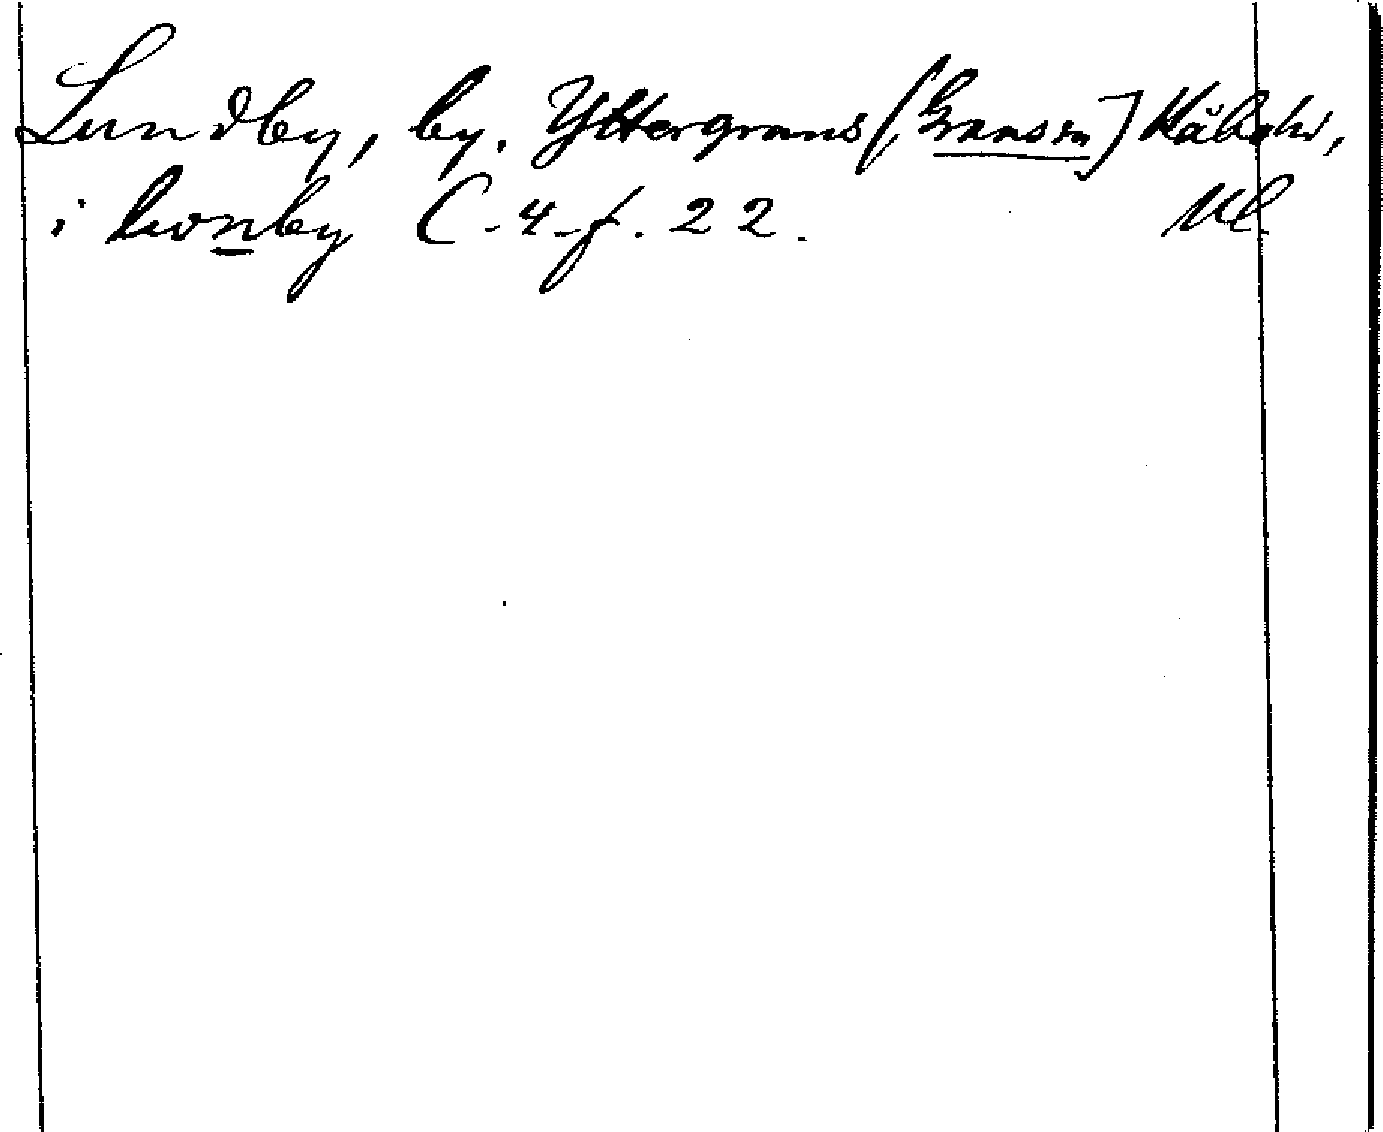 Lundby, by. Yttergrans (Gransm) Håbohr,
i lwnby C-4-f. 22. Ul